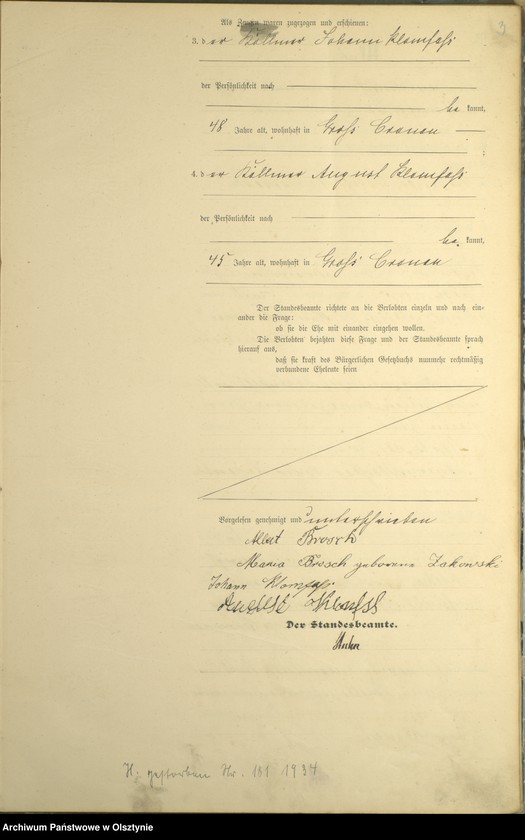 Als Zeugen waren zugezogen und erschienen:
3. der Köllmer Johann Klomfaß
der Persönlichkeit nach
be kannt,
48 Jahre alt, wohnhaft in Groß Cronau
4. der Köllmer August Klomfaß
der Persönlichkeit nach
be kannt,
45 Jahre alt, wohnhaft in Groß Cronau
Der Standesbeamte richtete an die Verlobten einzeln und nach ein-
ander die Frage:
ob sie die Ehe mit einander eingehen wollen.
Die Verlobten bejahten diese Frage und der Standesbeamte sprach
hierauf aus,
daß sie kraft des Bürgerlichen Gesetzbuchs nunmehr rechtmäßig
verbundene Eheleute seien
Vorgelesen genehmigt und unterschrieben
Brosch
Maria Brosch geborene Zakowski
Johann Klomfaß
Der Standesbeamte.
H. gestorben Nr. 181 1934
Archiwum Państwowe w Olsztynie